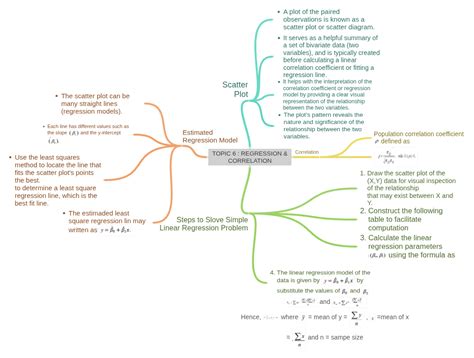 • A plot of the paired
observations is known as a
scatter plot or scatter diagram.
• It serves as a helpful summary of
a set of bivariate data (two
variables), and is typically created
before calculating a linear
correlation coefficient or fitting a
regression line.
• It helps with the interpretation of the
correlation coefficient or regression
model by providing a clear visual
representation of the relationship
between the two variables.
• The plot's pattern reveals the
nature and significance of the
relationship between the two
variables.
Scatter
Plot
• The scatter plot can be
many straight lines
(regression models).
• Each line has different values such as
the slope (β̂₁) and the y-intercept
(β̂₀).
Estimated
Regression Model
• Use the least squares
method to locate the line that
fits the scatter plot's points
the best.
to determine a least square
regression line, which is the
best fit line.
• The estimaded least
square regression lin may
written as ŷ = β̂₀ + β̂₁x.
TOPIC 6 : REGRESSION &
CORRELATION
Correlation
Population correlation coefficient
defined as
Steps to Slove Simple
Linear Regression Problem
1. Draw the scatter plot of the
(X,Y) data for visual inspection
of the relationship
that may exist between X and
Y.
2. Construct the following
table to facilitate
computation
3. Calculate the linear
regression parameters
(β̂₀, β̂₁) using the formula as
4. The linear regression model of the
data is given by ŷ = β̂₀ + β̂₁x by
substitute the values of β̂₀ and β̂₁
and
Hence, where y = mean of y = Σy/n , x =mean of x
= Σx/n and n = sampe size